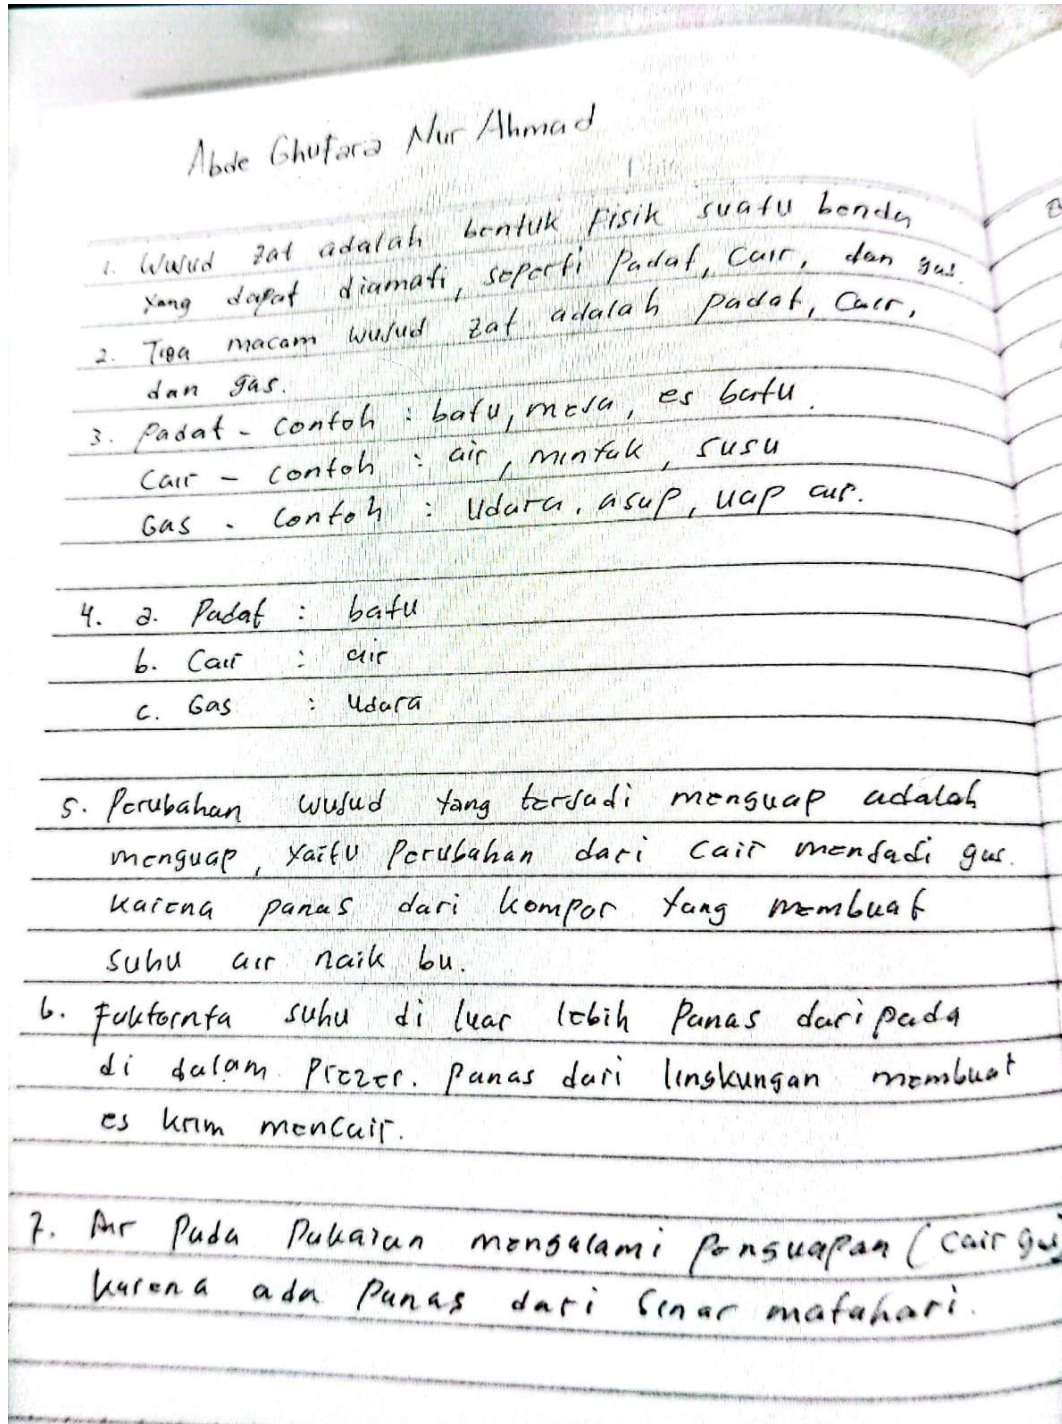 Abde Ghufara Nur Ahmad
1. Wujud zat adalah bentuk Fisik suatu benda
yang dapat diamati, seperti Padat, Cair, dan gas.
2. Tiga macam wujud zat adalah padat, Cair,
dan gas.
3. Padat - Contoh : batu, meja, es batu.
Cair - Contoh : air, mintak, susu
Gas - Contoh : Udara, asap, uap air.
4. a. Padat : batu
b. Cair : air
c. Gas : Udara
5. Perubahan wujud yang terjadi menguap adalah
menguap, yaitu Perubahan dari Cair menjadi gas.
Karena panas dari kompor yang membuat
suhu air naik bu.
6. Faktornya suhu di luar lebih Panas daripada
di dalam Prezer. Panas dari lingkungan membuat
es krim mencair.
7. Air Pada Pakaian mengalami Penguapan (cair gas
Karena ada Panas dari Sinar matahari.